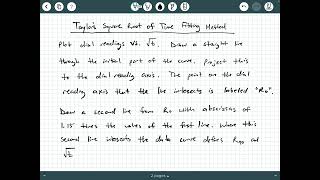 Taylor's Square Root of Time Fitting Method
Plot dial readings vs. √t. Draw a staight line
through the initial part of the curve. Project this
to the dial reading axis. The point on the dial
reading axis that the line intersects is labeled "R₀".
Draw a second line from R₀ with abscissas of
1.15 times the values of the first line. Where this
second line intersects the data curve defines R₉₀ and
√t
2 pages